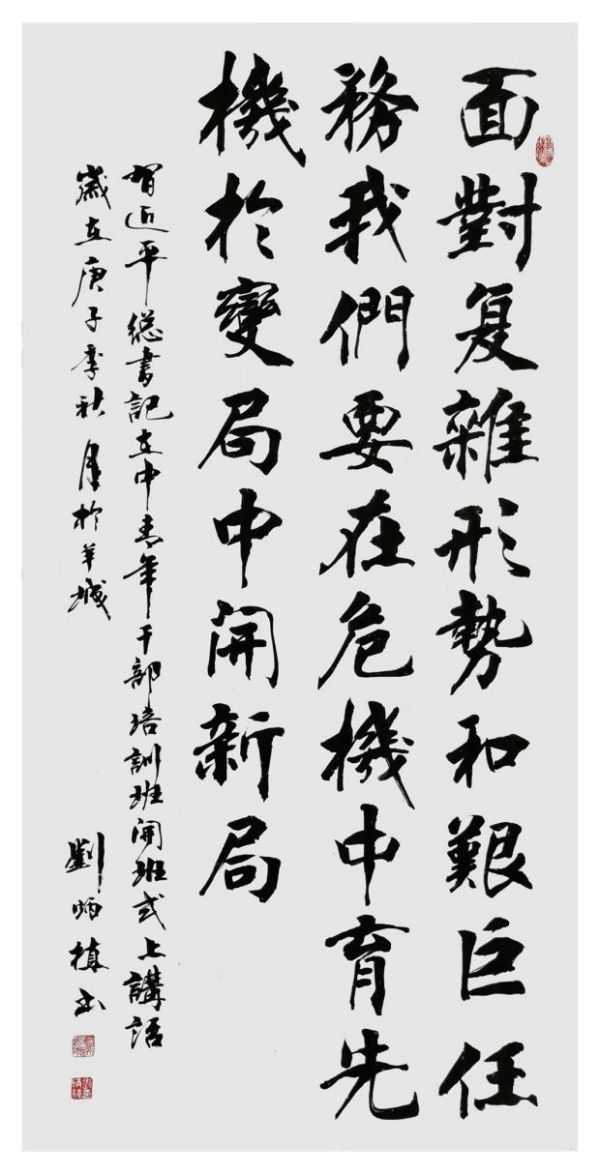 面對复雜形勢和艱巨任
務我們要在危機中育先
機於變局中開新局
習近平総書記在中青年干部培訓班開班式上講話
歲在庚子季秋月於羊城
劉炳植书